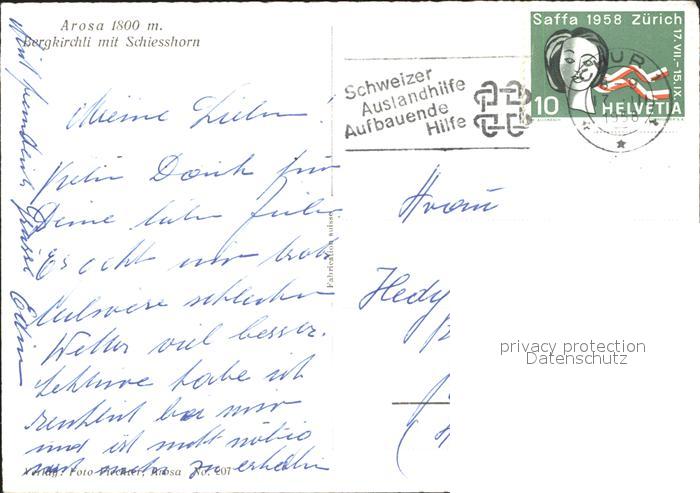 Arosa 1800 m.
Bergkirchli mit Schiesshorn
Meine Lieben!
Vielen Dank für
Deine lieben Zeilen.
Es geht mir trotz
schlechten
Wetter viel besser.
Lektüre habe ich
bei mir
und ist nicht nötig
zu erhalten
Verlag: Foto Fiechter, Arosa No. 207
Fabrication suisse
Schweizer
Auslandhilfe
Aufbauende
Hilfe
Saffa 1958 Zürich
17.VII.-15.IX.
10 HELVETIA
Frau
Hedy
privacy protection
Datenschutz